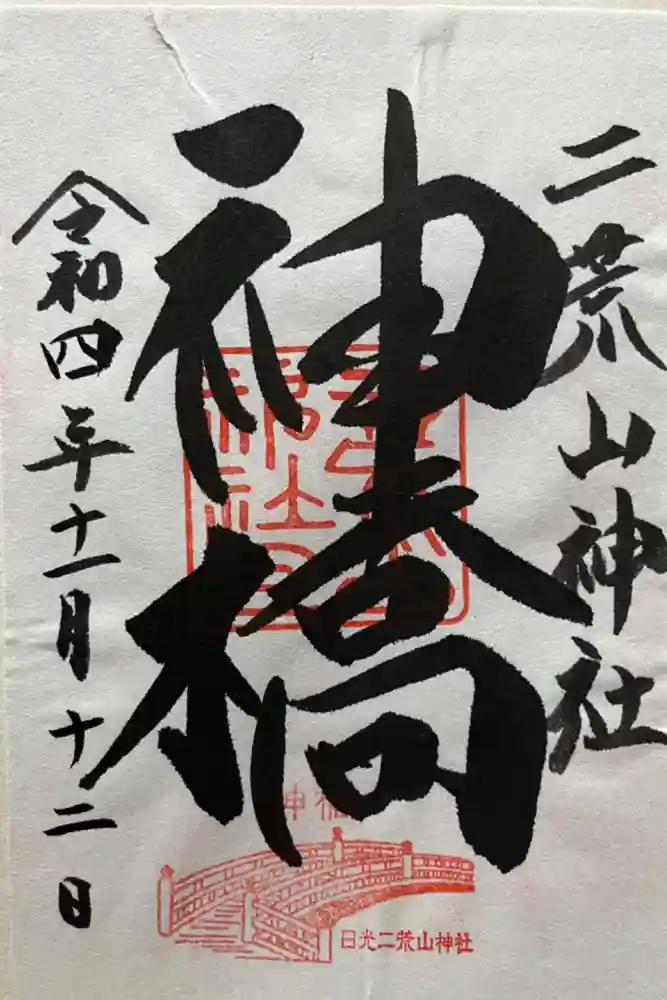 二荒山神社
神橋
令和四年十一月十二日
日光二荒山神社